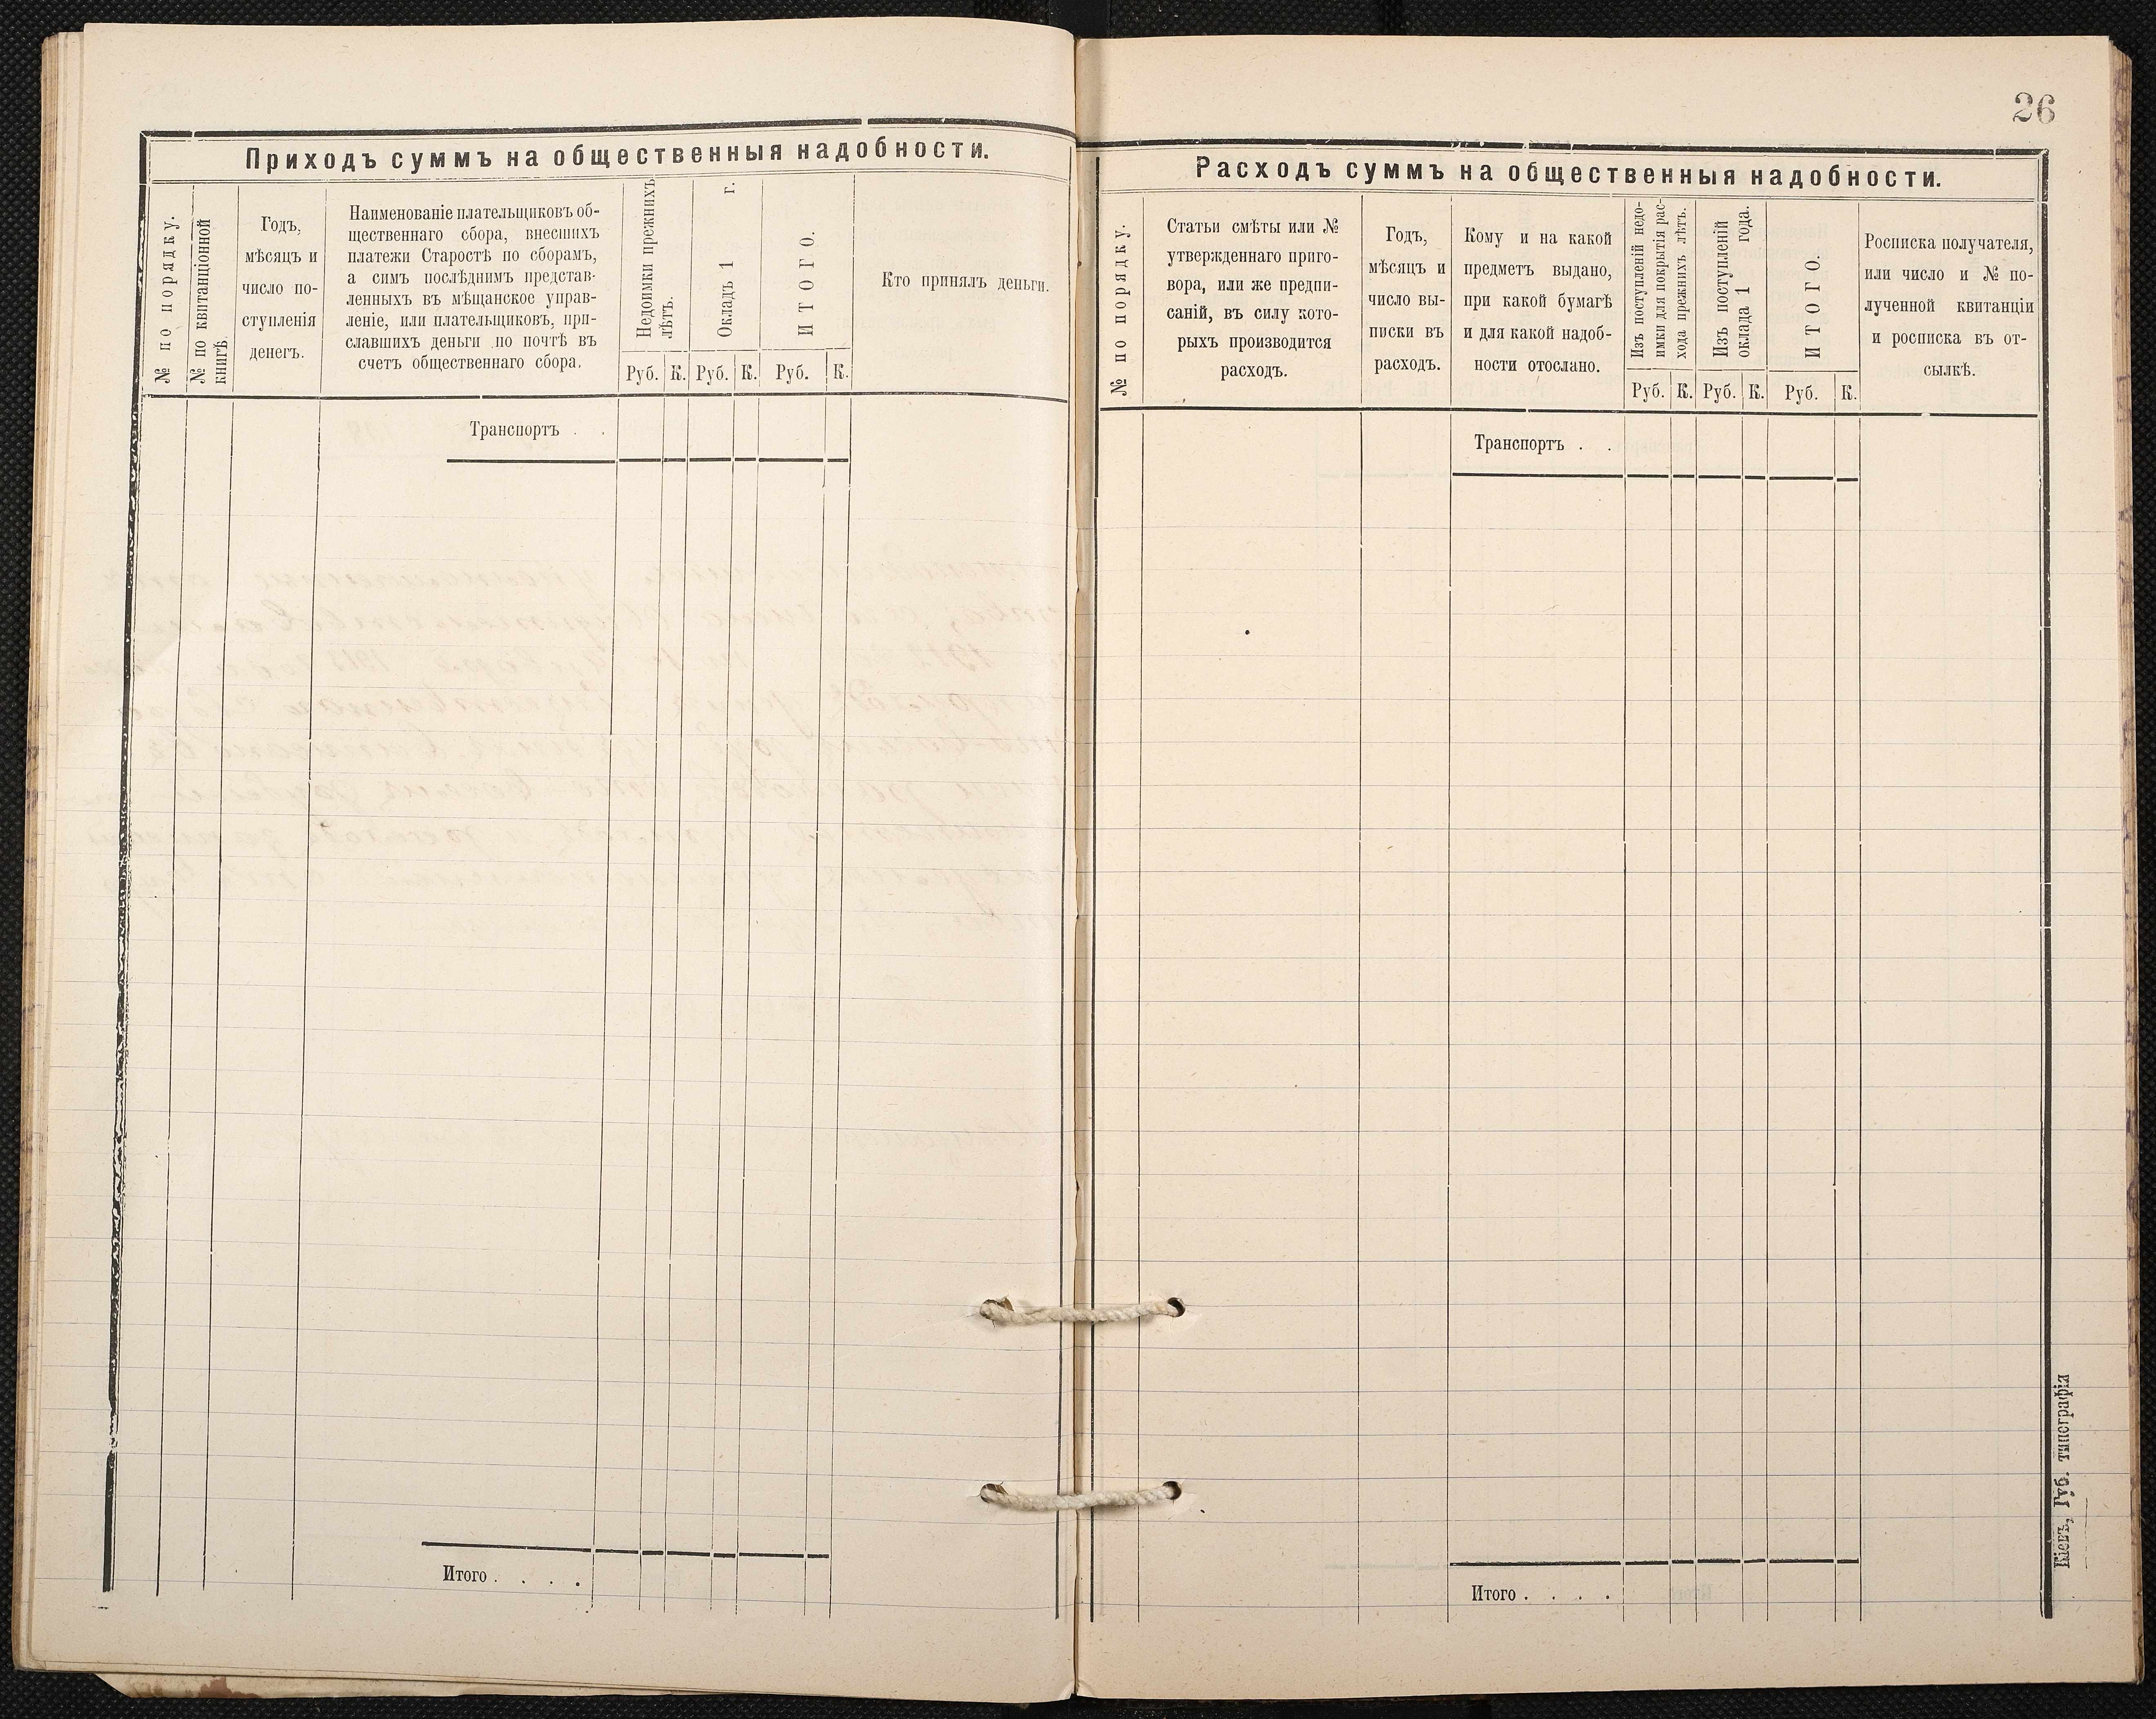 26
Приходъ суммъ на общественныя надобности.
№ по порядку.
№ по квитанціонной
книгѣ.
Годъ,
мѣсяцъ и
число по-
ступленія
денегъ.
Наименованіе плательщиковъ об-
щественнаго сбора, внесшихъ
платежи Старостѣ по сборамъ,
а симъ послѣднимъ представ-
ленныхъ въ мѣщанское управ-
леніе, или плательщиковъ, при-
славшихъ деньги по почтѣ въ
счетъ общественнаго сбора.
Недоимки прежнихъ
лѣтъ.
Окладъ 1 г.
ИТОГО.
Руб. К. Руб. К. Руб. К.
Кто принялъ деньги.
Транспортъ . .
Итого . . . .
Расходъ суммъ на общественныя надобности.
№ по порядку.
Статьи смѣты или №
утвержденнаго приго-
вора, или же предпи-
саній, въ силу кото-
рыхъ производится
расходъ.
Годъ,
мѣсяцъ и
число вы-
писки въ
расходъ.
Кому и на какой
предметъ выдано,
при какой бумагѣ
и для какой надоб-
ности отослано.
Изъ поступленій недо-
имки для покрытія рас-
хода прежнихъ лѣтъ.
Изъ поступленій
оклада 1 года.
ИТОГО.
Руб. К. Руб. К. Руб. К.
Росписка получателя,
или число и № по-
лученной квитанціи
и росписка въ от-
сылкѣ.
Транспортъ . .
Итого . . . .
Кіевъ, Губ. типографія